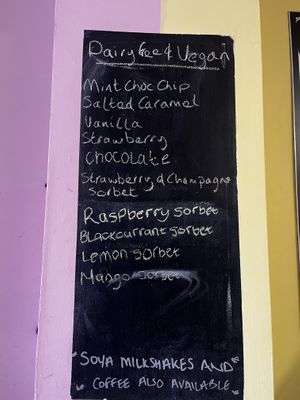 Dairy free & Vegan
Mint Choc Chip
Salted Caramel
Vanilla
Strawberry
CHOCOLATE
Strawberry & Champagne
Sorbet
Raspberry Sorbet
Blackcurrant Sorbet
Lemon Sorbet
Mango Sorbet
"SOYA MILKSHAKES AND
COFFEE ALSO AVAILABLE"